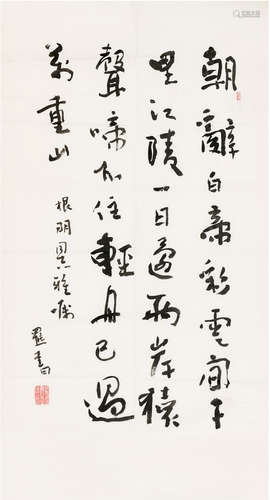 朝辭白帝彩雲間千
里江陵一日還兩岸猿
聲啼不住輕舟已過
萬重山
根朋同志雅嘱
書